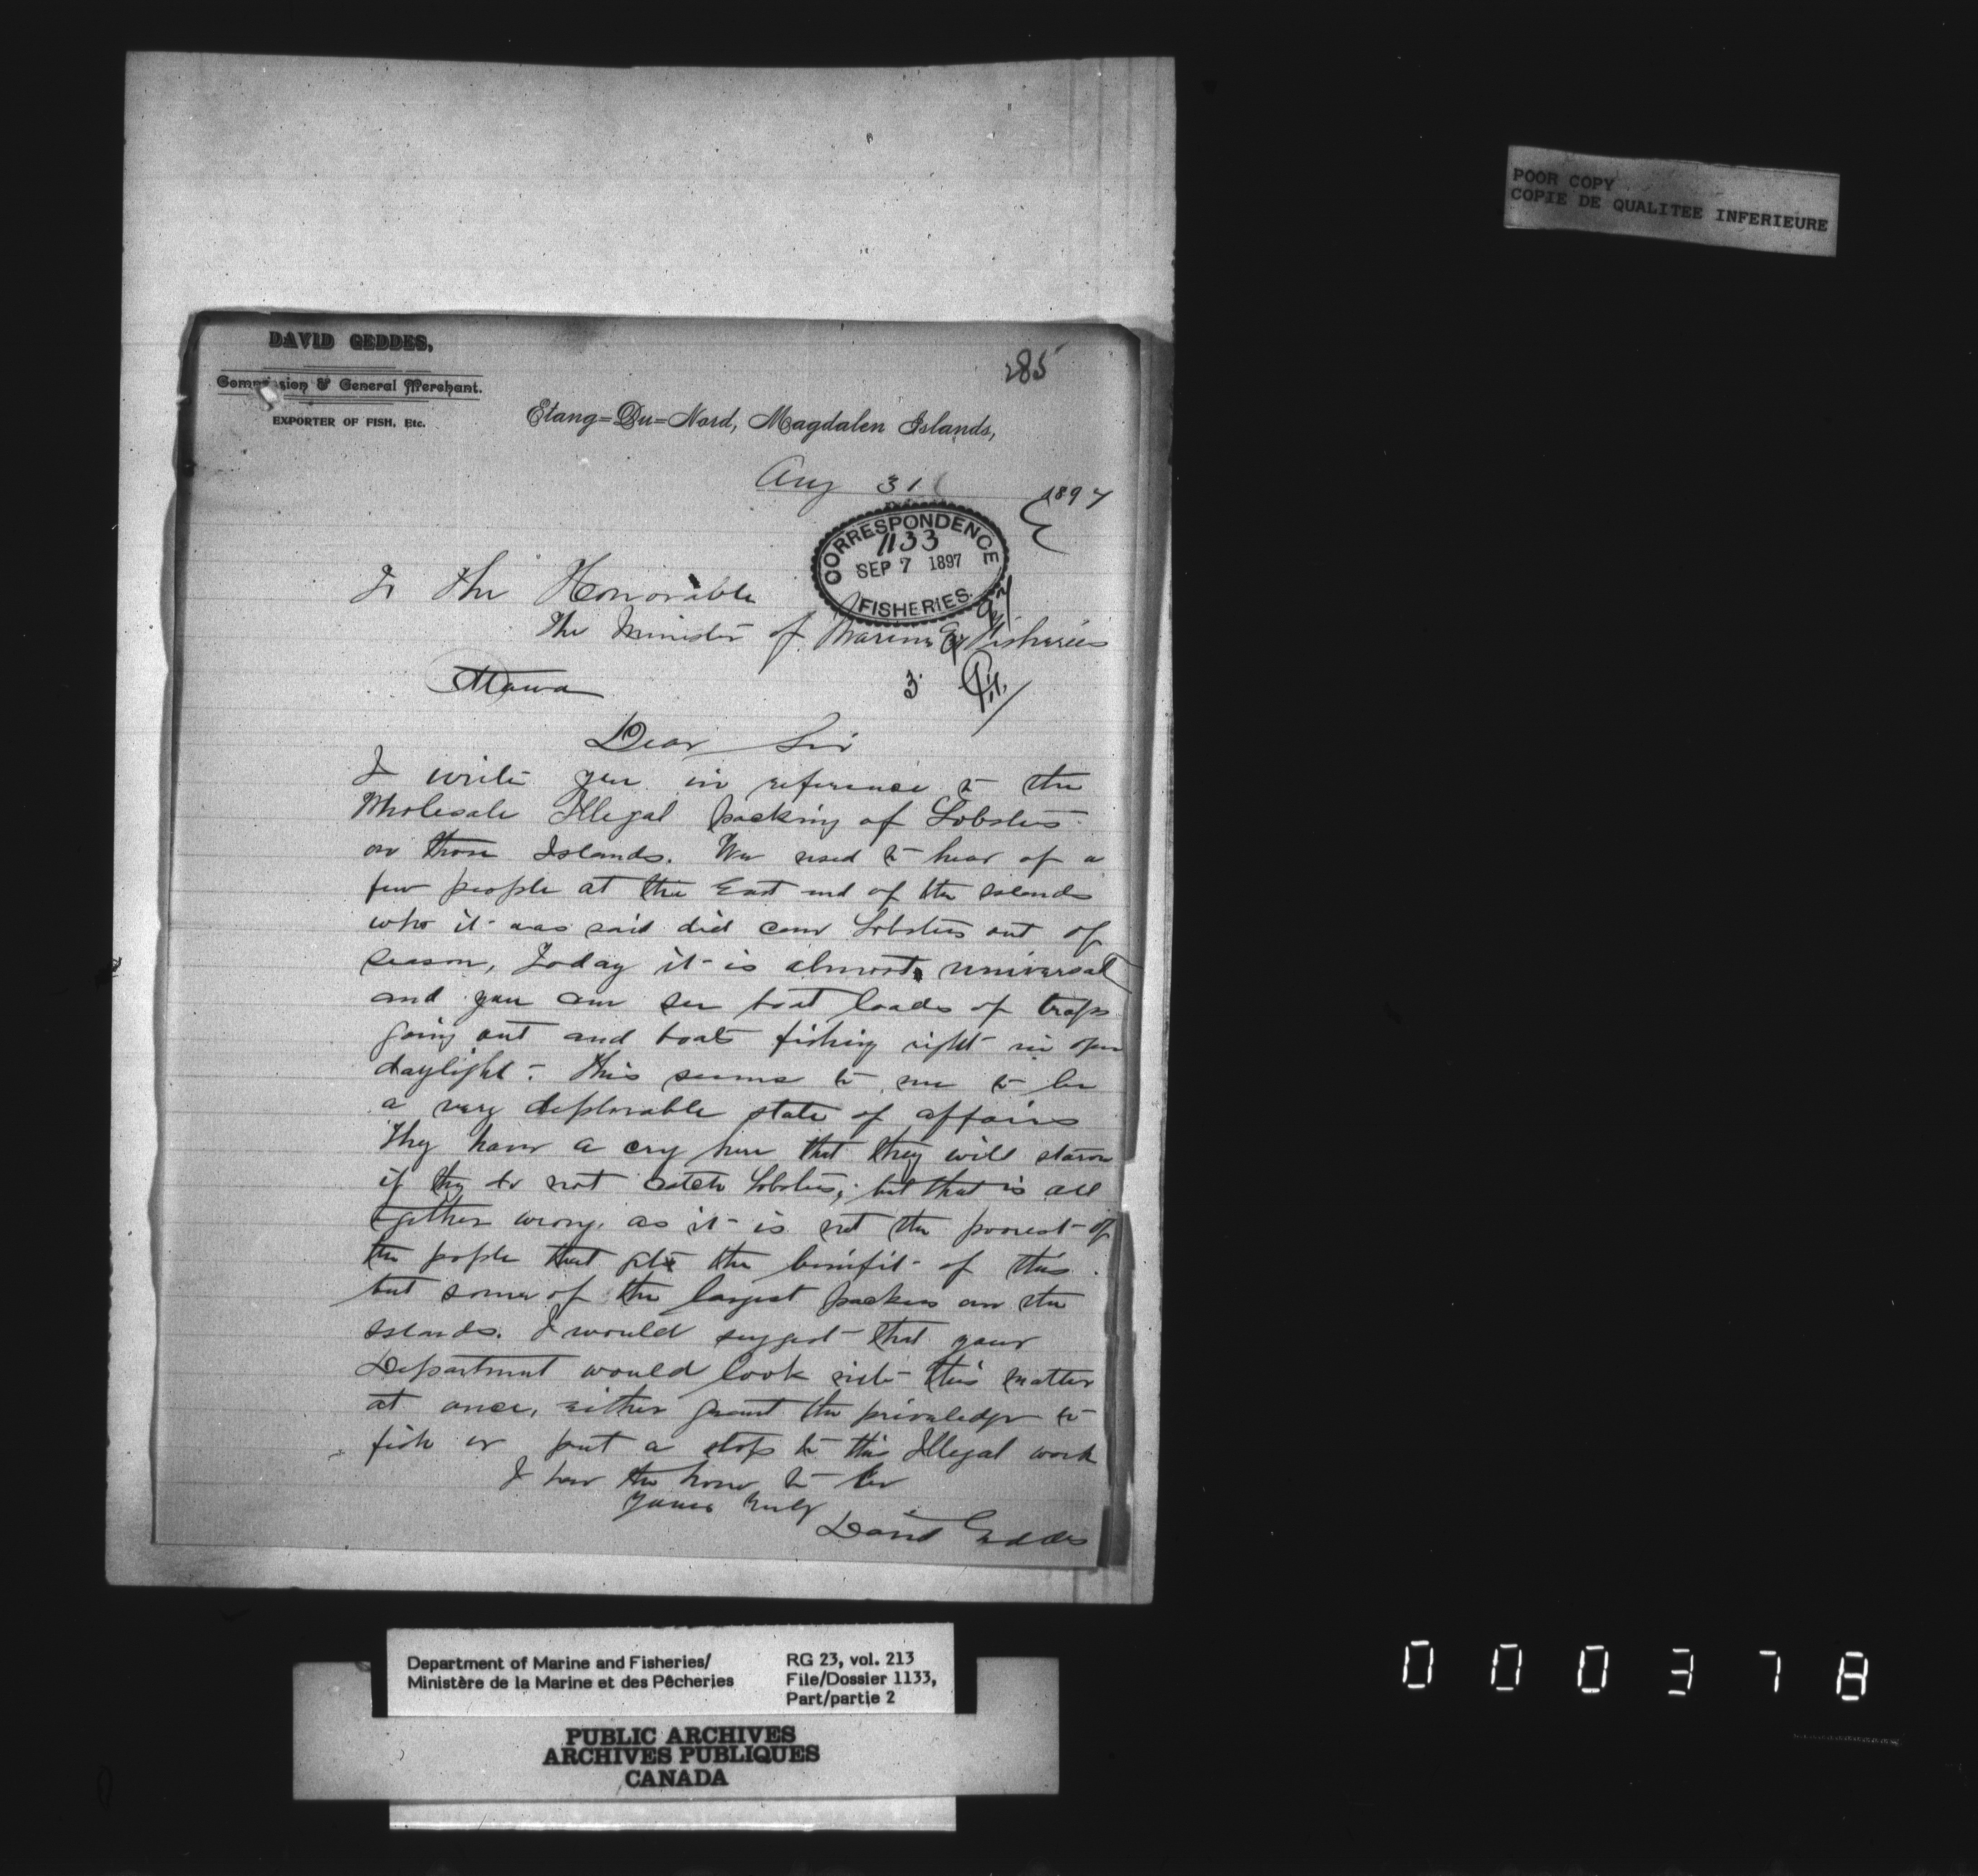 POOR COPY
COPIE DE QUALITEE INFERIEURE
DAVID GEDDES,
Commission & General Merchant.
EXPORTER OF FISH, Etc.
285
Etang=Du=Nord, Magdalen Islands,
Aug 31 1897
CORRESPONDENCE
1133
SEP 7 1897
FISHERIES.
To the Honorable
The Minister of Marine & Fisheries
Ottawa
3
Dear Sir
I write you in reference to the
Wholesale Illegal packing of Lobsters
on those Islands. We used to hear of a
few people at the East end of the Islands
who it was said did can Lobsters out of
season, Today it is almost universal
and you can see boat loads of traps
going out and boats fishing right in open
daylight. This seems to me to be
a very deplorable state of affairs
They have a cry here that they will starve
if they do not catch Lobsters, but that is all
together wrong, as it is not the poorest of
the people that gets the binifit of this
but some of the largest packers on the
Islands. I would suggest that your
Department would look into this matter
at once, either grant the priviledge to
fish or put a stop to this Illegal work
I have the honor to be
Yours truly
David Geddes
Department of Marine and Fisheries/
Ministère de la Marine et des Pêcheries
RG 23, vol. 213
File/Dossier 1133,
Part/partie 2
PUBLIC ARCHIVES
ARCHIVES PUBLIQUES
CANADA
000378